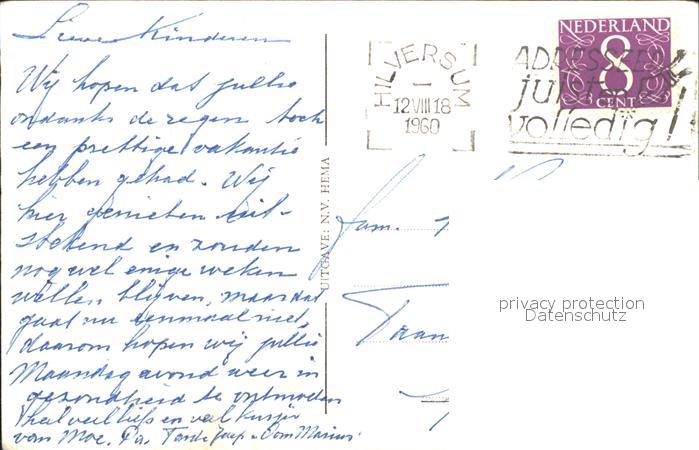 Lieve Kinderen
Wij hopen dat jullie
ondanks de regen toch
een prettige vakantie
hebben gehad. Wij
hier genieten uit-
stekend en zouden
nog wel enige weken
willen blijven, maar dat
gaat nu eenmaal niet,
daarom hopen wij jullie
Maandagavond weer in
gezondheid te ontmoeten
heel veel liefs en veel kusjes
van Moe, Pa, Tante Jaap en Oom Marius
UITGAVE: N.V. HEMA
HILVERSUM
12 VIII 18
1960
NEDERLAND
8
CENT
ADRESSEER
juist en
volledig!
Fam.
privacy protection
Datenschutz